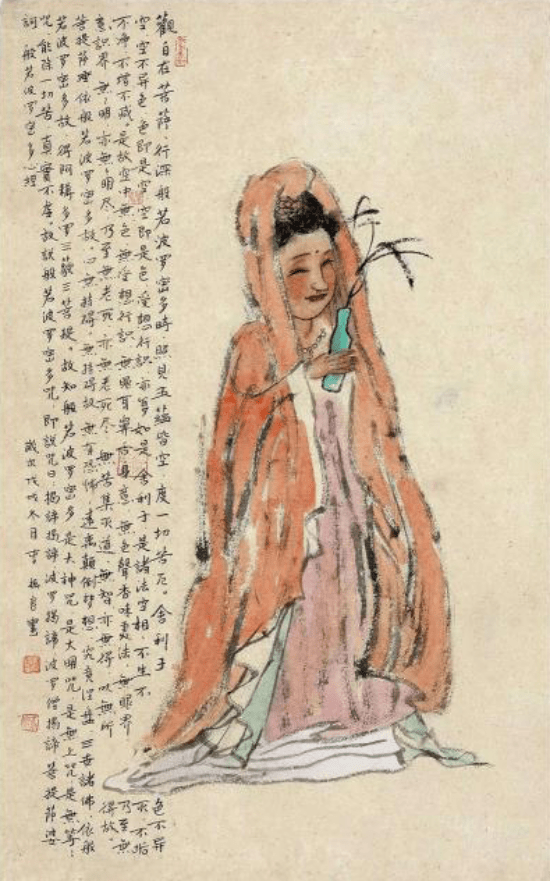 觀自在菩萨,行深般若波罗密多時,照見五蘊皆空,度一切苦厄。舍利子色不异
空,空不异色,色即是空,空即是色,受想行識亦复如是,舍利子是諸法空相,不生不灭不垢
不净,不增不减,是故空中無色,無受想行識,無眼耳鼻舌身意,無色聲香味觸法,無眼界乃至無
意識界,無々明,亦無々明尽,乃至無老死,亦無老死尽,無苦集灭道,無智亦無得,以無所得故,
菩提萨埵,依般若波罗密多故,心無挂碍,無挂碍故,無有恐怖,遠离顛倒梦想,究竟涅盘,三世諸佛,依般
若波罗密多故,得阿耨多罗三藐三菩提,故知般若波罗密多是大神咒,是大明咒,是無上咒,是無等々
咒,能除一切苦,真實不虚。故說般若波罗密多咒,即說咒曰:揭諦揭諦,波罗揭諦,波罗僧揭諦,菩提萨婆
訶,般若波罗密多心經
歲次戊戌冬月李良寫